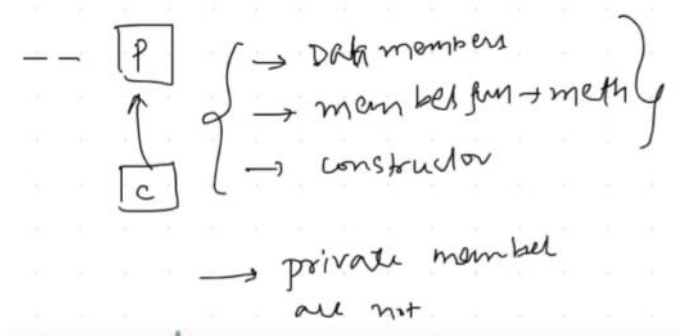 P
→ Data members
→ member fun → meth
→ constructor
C
→ private member
are not